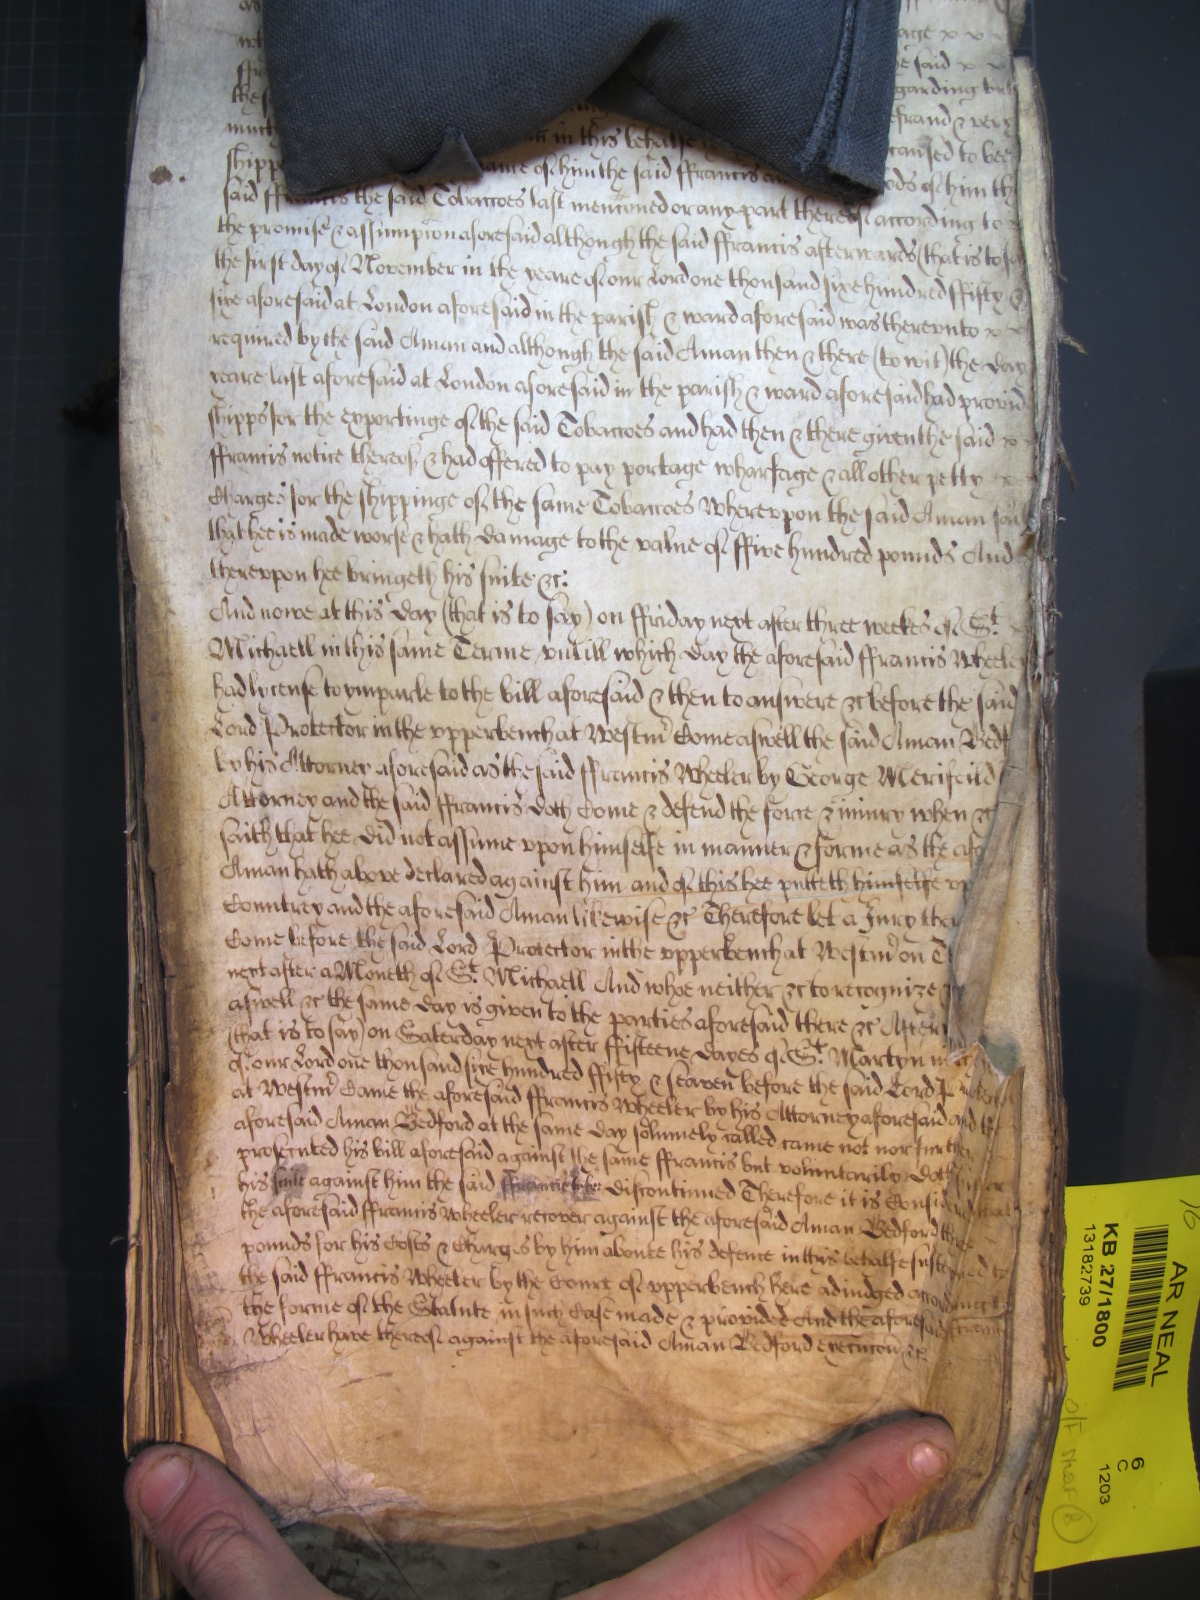 age
he said
the s garding
much efraud & very
in this behalfe caused to bee
shipp of him the said ffrancis ods of him th
said ffrancis the said Tobaccoes last mencioned or any part thereof according to
the promise & assumpcion aforesaid although the said ffrancis afterwards (that is to sa
the first day of November in the yeare of our Lord one thousand sixe hundred ffifty &
sixe aforesaid at London aforesaid in the parish & ward aforesaid was therevnto
required by the said Aman and although the said Aman then & there (to wit) the day
yeare last aforesaid at London aforesaid in the parish & ward aforesaid had provid
shipps for the exportinge of the said Tobaccoes and had then & there given the said
ffrancis notice thereof & had offered to pay portage wharfage & all other petty
Charges for the shippinge of the same Tobaccoes Wherevpon the said Aman sai
that hee is made worse & hath damage to the value of ffive hundred pounds And
therevpon hee bringeth his suite &c:
And nowe at this day (that is to say) on ffriday next after three weekes of St
Michaell in this same Terme vntill which day the aforesaid ffrancis Wheeler
had lycense to ymparle to the bill aforesaid & then to answere &c before the said
Lord Protector in the vpperbench at Westmr Come aswell the said Aman Bedf
by his Attorney aforesaid as the said ffrancis Wheeler by George Merifeild
Attorney and the said ffrancis doth Come & defend the force & iniury when &c
saith that hee did not assume vpon himselfe in manner & forme as the afo
Aman hath above declared against him and of this hee putteth himselfe vp
Countrey and the aforesaid Aman likewise &c Therefore let a Jury ther
Come before the said Lord Protector in the vpperbench at Westmr on T
next after a Moneth of St Michaell And whoe neither &c to recognize
aswell &c the same day is given to the parties aforesaid there &c After
(that is to say) on Saterday next after ffifteene dayes of St Martyn in
of our Lord one thousand sixe hundred ffifty & seaven before the said Lord Protector
at Westmr Came the aforesaid ffrancis Wheeler by his Attorney aforesaid and the
aforesaid Aman Bedford at the same day solemnely called came not nor further
prosecuted his bill aforesaid against the same ffrancis but voluntarily doth suffer
his suite against him the said ffrancis to be discontinued Therefore it is Considered that
the aforesaid ffrancis Wheeler recover against the aforesaid Aman Bedford three
pounds for his Costs & Charges by him aboute his defence in this behalfe susteyned to
the said ffrancis Wheeler by the Court of vpperbench here adiudged according to
the forme of the Statute in such Case made & provided And the aforesaid ffrancis
Wheeler have thereof against the aforesaid Aman Bedford execucion &c
AR NEAL
KB 27/1800
13182739
6
C
1203